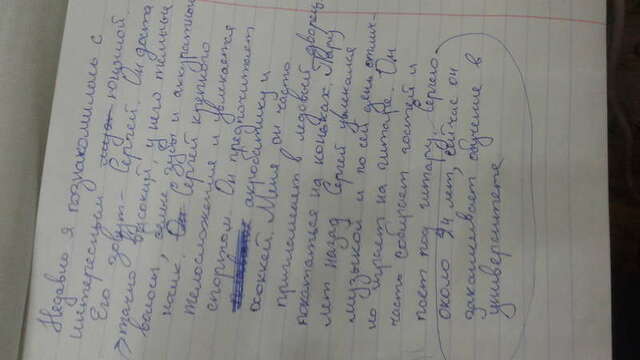 Недавно я познакомилась с
интересным юношей.
Его зовут - Сергей. Он доста
точно высокий, у него тёмные
волосы, белые зубы и аккуратный
носик. Сергей крупного
телосложения и увлекается
спортом. Он предпочитает
акробатику и
хоккей. Меня он часто
приглашает в ледовый дворец
покататься на коньках. Пару
лет назад Сергей увлекался
музыкой и по сей день отлич-
но играет на гитаре. Он
часто собирает гостей и
поет под гитару. Сергею
около 24 лет, сейчас он
заканчивает обучение в
университете